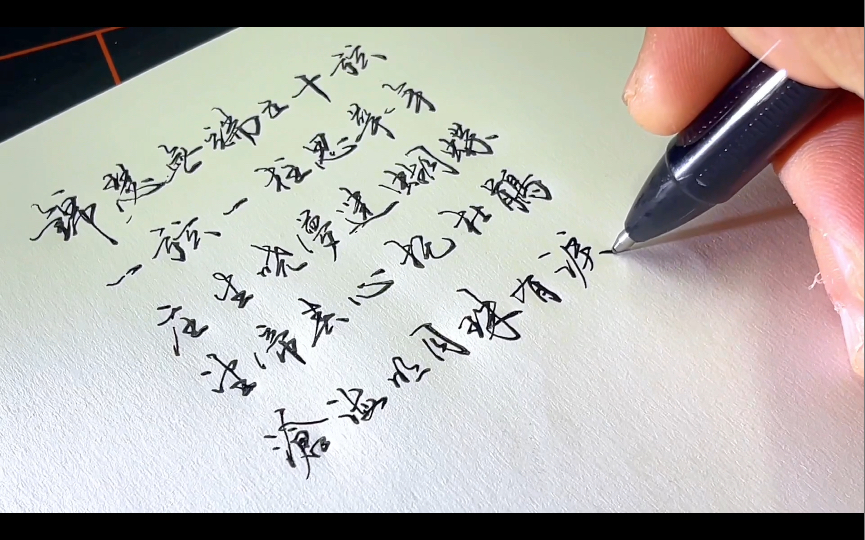 錦瑟无端五十弦
一弦一柱思華年
庄生晓夢迷蝴蝶
望帝春心托杜鵑
滄海月明珠有淚